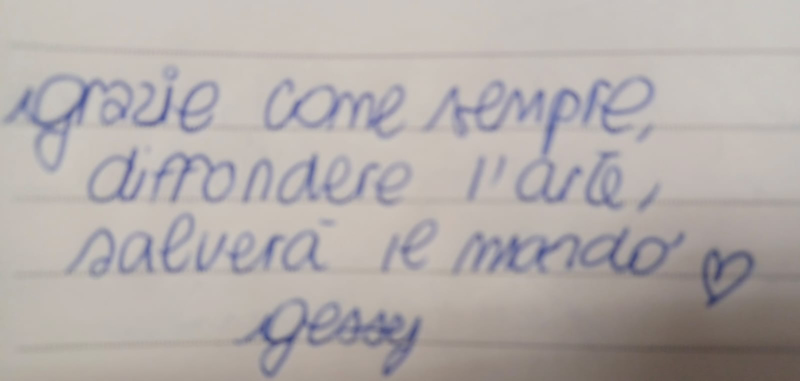 grazie come sempre,
diffondere l'arte,
salverà il mondo ♡
gessy